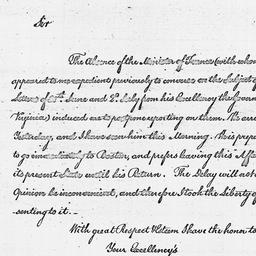 Sir
The Absence of the Minister of France (with whom
appeared to me expedient previously to converse on the subject of
Letters of 5th. June and 2d. July from his Excellency the Governor
Virginia) induced me to postpone reporting on them. He arr
Yesterday, and I have seen him this Morning. He is prepa
to go immediately to Boston, and prefers leaving this Affa
its present State until his Return. The Delay will not
Opinion be inconvenient, and therefore I took the Liberty of
senting to it. —
With great Respect & Esteem I have the honor to
Your Excellency's